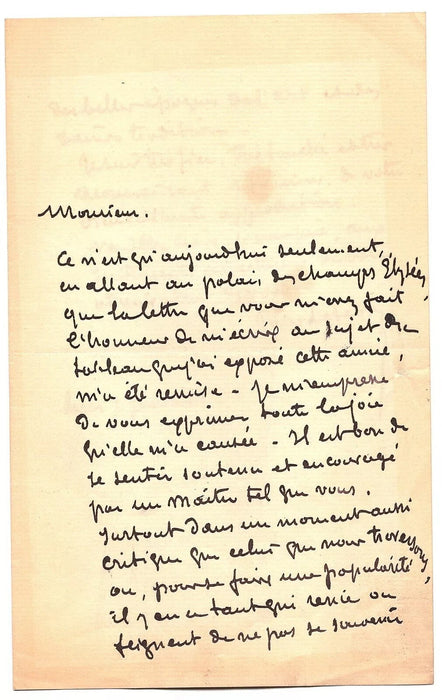 Monsieur.
Ce n'est qu'aujourd'hui seulement,
en allant au palais des champs Élysées,
que la lettre que vous m'avez fait
l'honneur de m'écrire au sujet du
tableau que j'ai exposé cette année,
m'a été remise - Je m'empresse
de vous exprimer toute la joie
qu'elle m'a causée - Il est bon de
se sentir soutenu et encouragé
par un Maître tel que vous.
surtout dans un moment aussi
critique que celui que nous traversons,
ou, pour se faire une popularité
il y en a tant qui renie ou
feignent de ne pas se souvenir